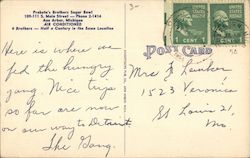 Preketes Brothers Sugar Bowl
109-111 S. Main Street — Phone 2-1414
Ann Arbor, Michigan
AIR CONDITIONED
4 Brothers — Half a Century in the Same Location
POST CARD
Here is where we
fed the hungry
gang. Nice trip
so far are now
on our way to Detroit
The Gang.
1 CENT
1 CENT
Mrs
1523 Veronica
St Louis 21,
Mo